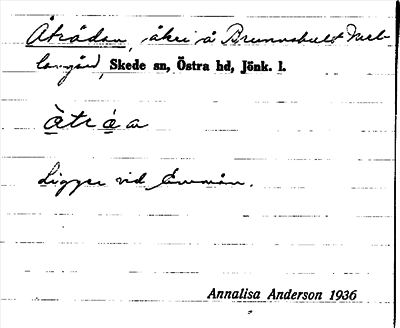 Åtrådan, åker å Brunnshult Mel-
langård, Skede sn, Östra hd, Jönk. l.
Ligger vid Emmån.
Annalisa Anderson 1936